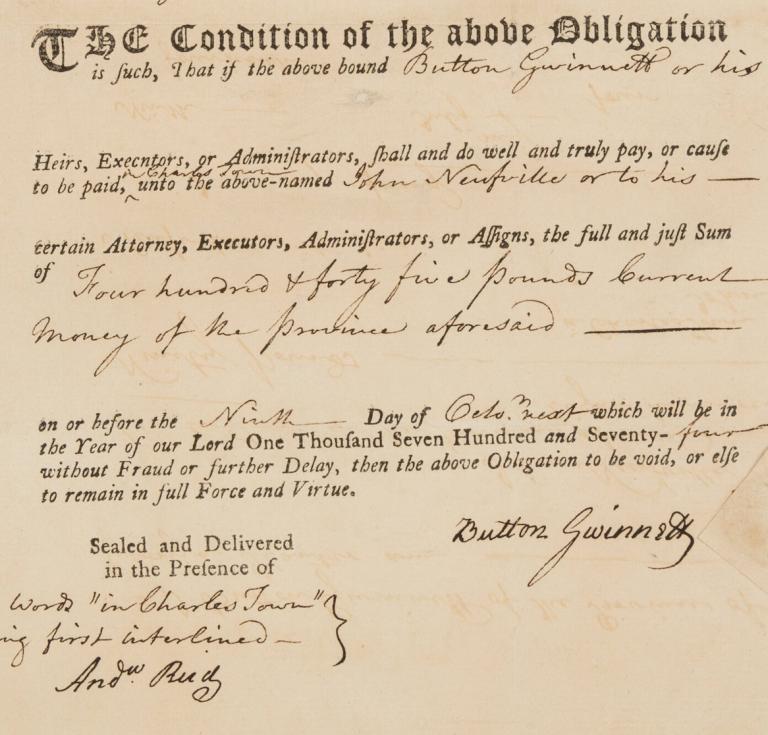 THE Condition of the above Obligation
is ſuch, That if the above bound Button Gwinnett or his
Heirs, Execntors, or Adminiſtrators, ſhall and do well and truly pay, or cauſe
in Charles Town
to be paid, ‸ unto the above-named John Neufville or to his —
certain Attorney, Executors, Adminiſtrators, or Aſſigns, the full and juſt Sum
of Four hundred & forty five pounds Current
Money of the Province aforesaid ———
on or before the Ninth Day of Octo.r next which will be in
the Year of our Lord One Thouſand Seven Hundred and Seventy- four
without Fraud or further Delay, then the above Obligation to be void, or elſe
to remain in full Force and Virtue.
Button Gwinnett
Sealed and Delivered
in the Preſence of
words "in Charles Town"
ng first interlined —
Andw. Reid